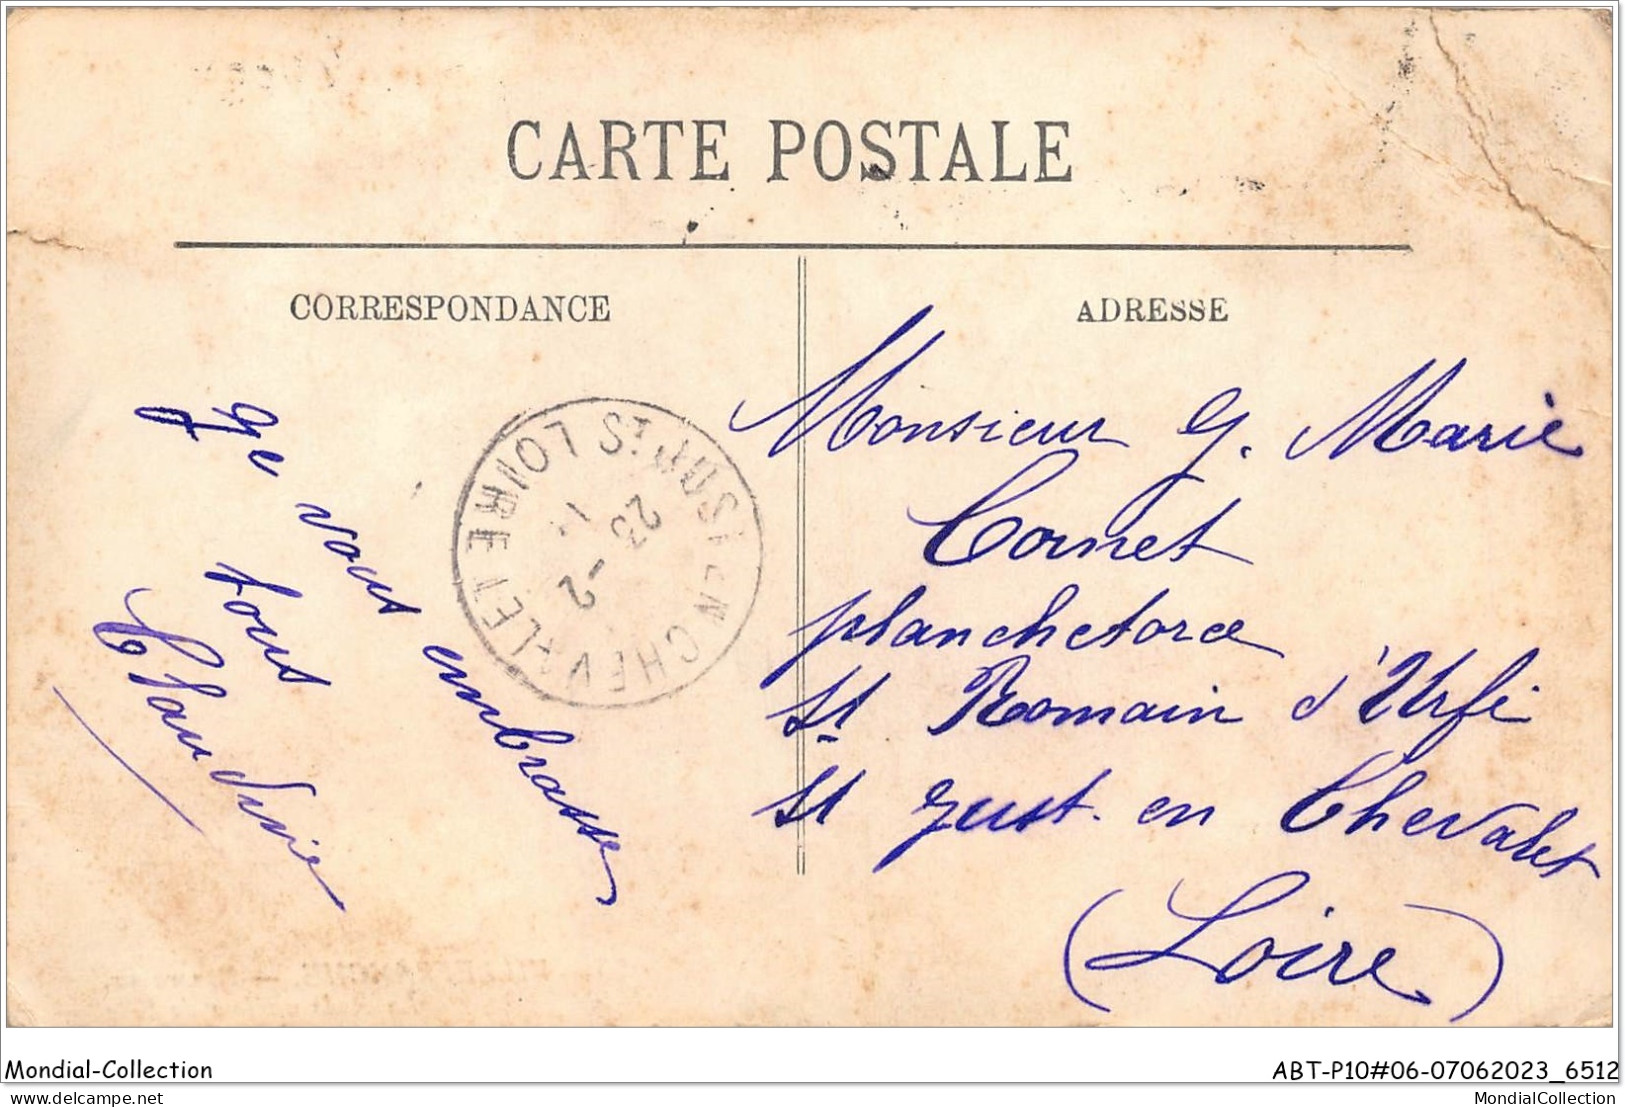 CARTE POSTALE
CORRESPONDANCE
ADRESSE
Je vous embrasse
tous
Claudine
ST JUST EN CHEVALET LOIRE
23 - 2
Monsieur J. Marie
Cornet
planchetorce
St Romain d'Urfé
St Just. en Chevalet
(Loire)
Mondial-Collection
ABT-P10#06-07062023_6512
MondialCollection